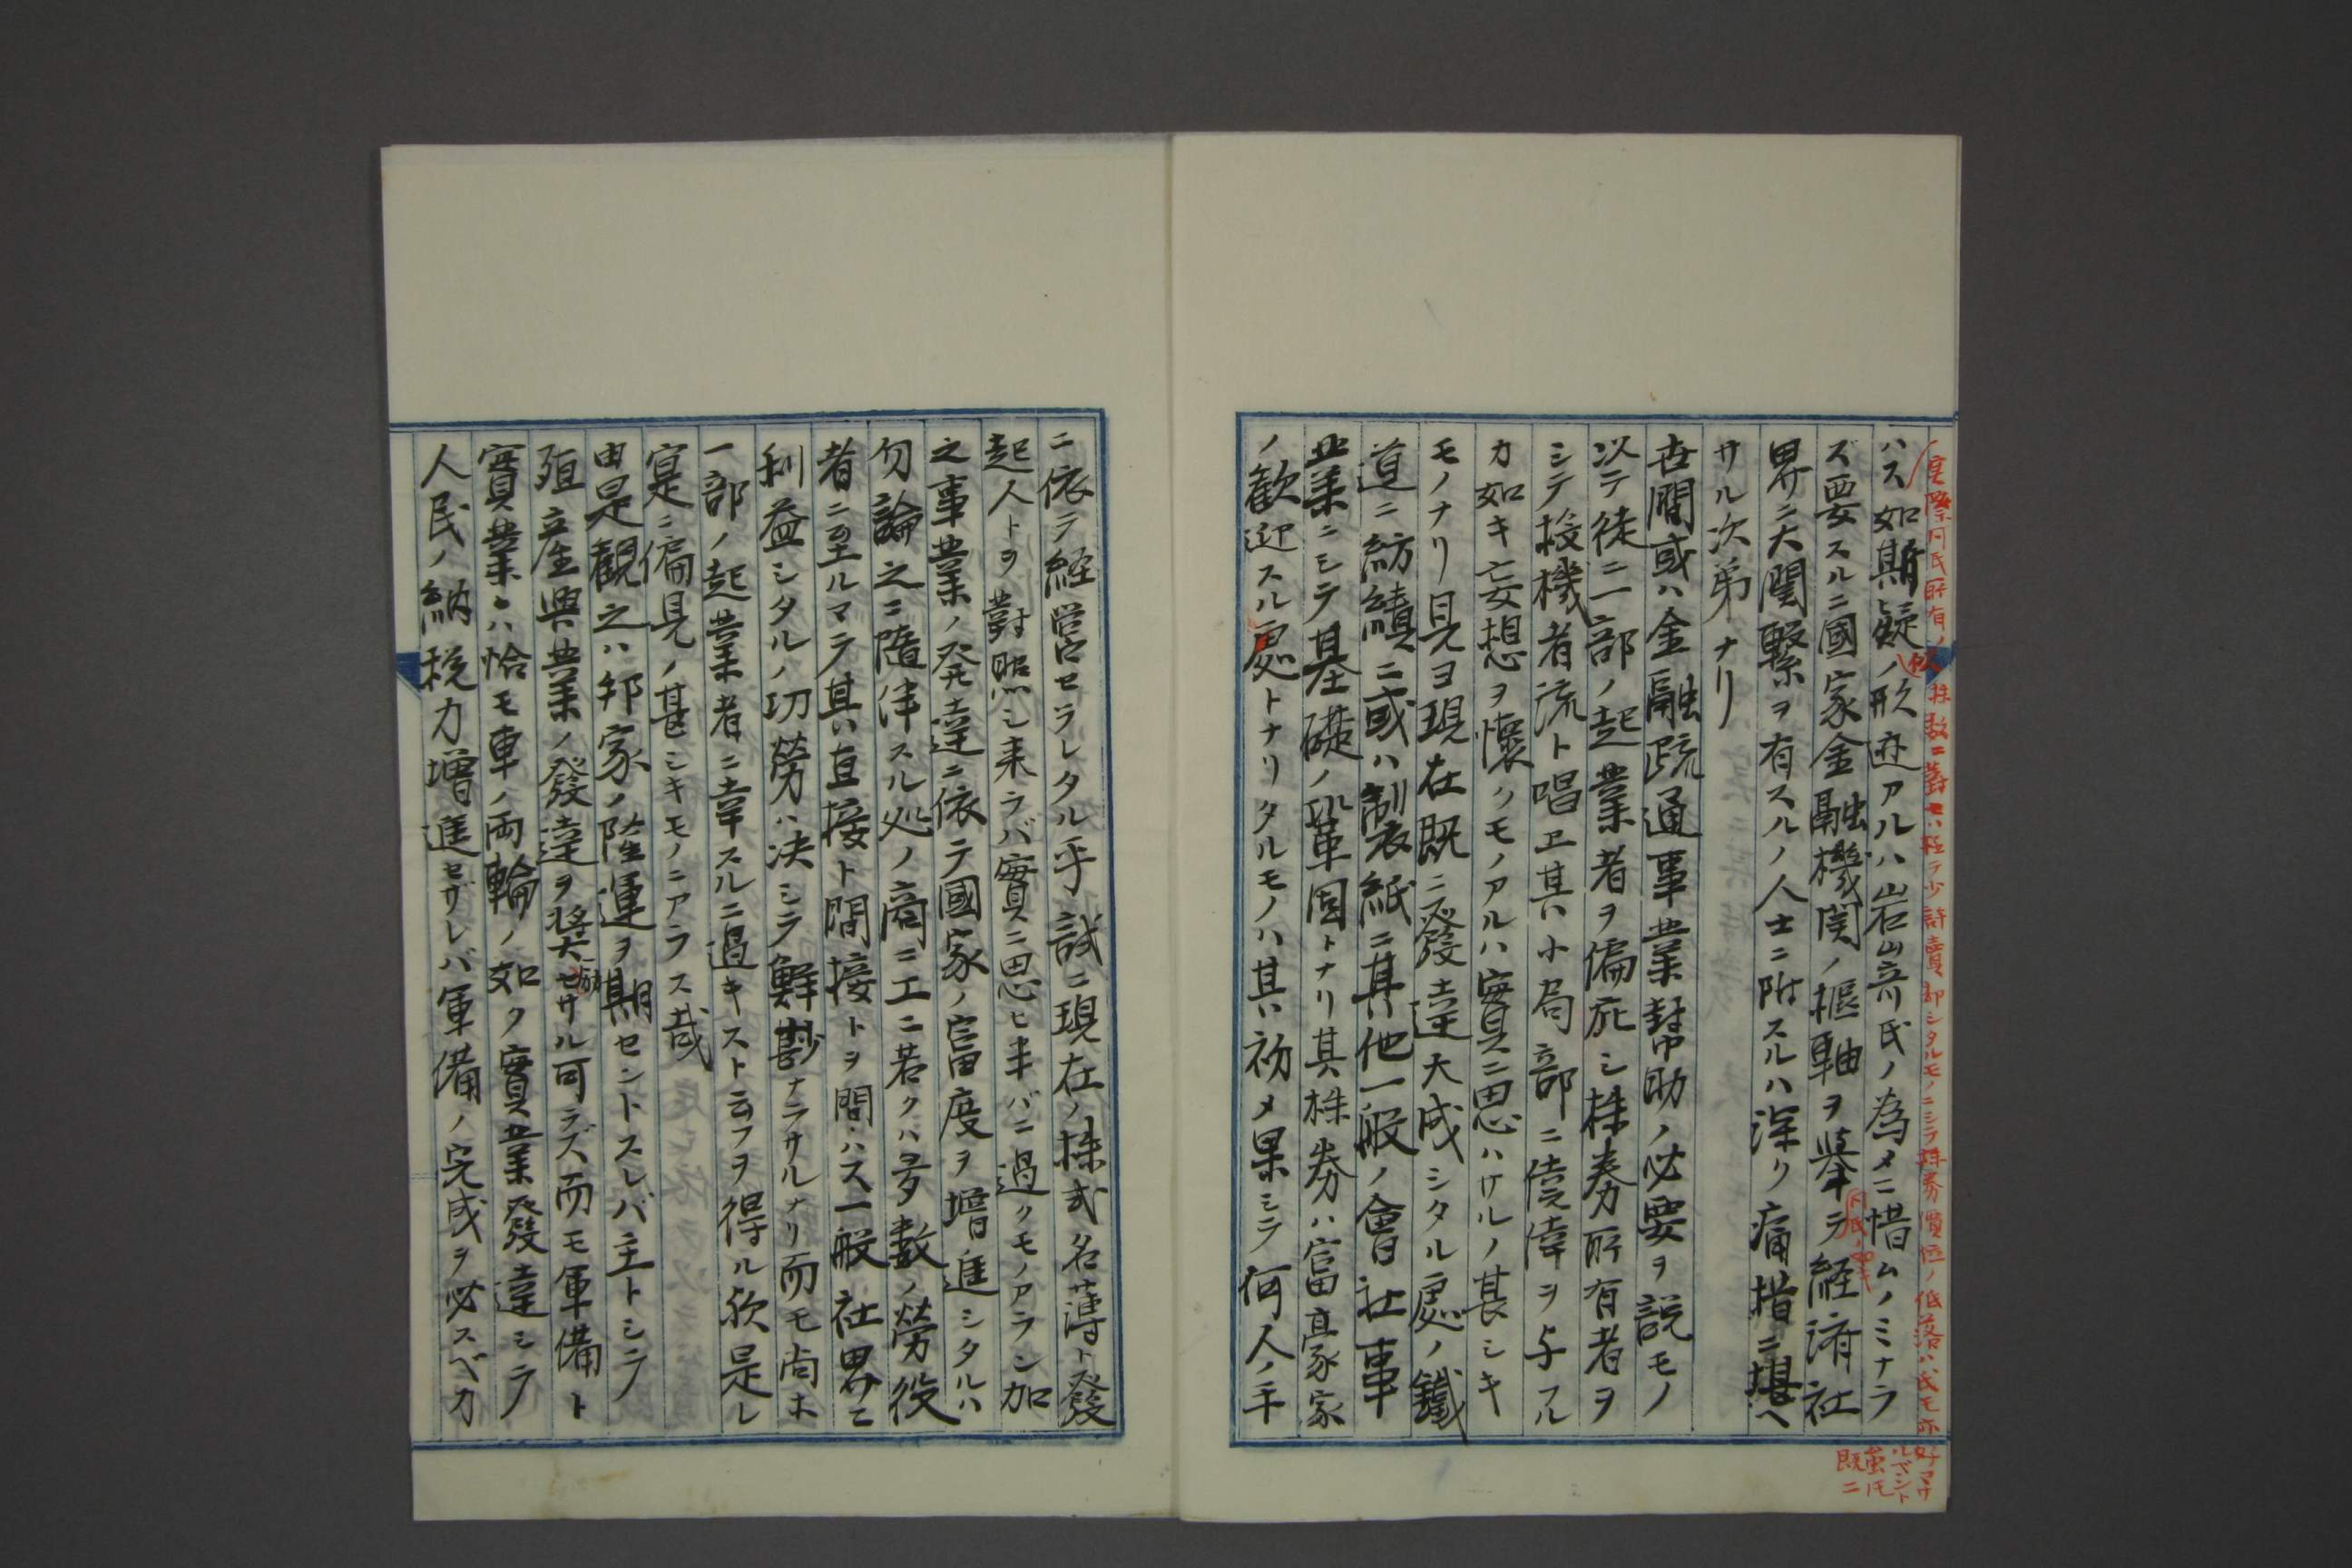 実際同氏所有ノ株数ニ対セハ極テ少許売却シタルモノニシテ株券價位ノ低落ハ氏モ亦好マサ
ルベシト
虽氏
既ニ
ハス如斯疑ノ形迹アルハ岩崎氏ノ為メニ惜ムノミナラ
似
ズ要スルニ國家金融機関ノ樞軸ヲ挙テ経済社
同氏ノ如キ
界ニ大関繋ヲ有スルノ人士ニ附スルハ深ク痛惜ニ堪ヘ
サル次第ナリ
世間或ハ金融疏通事業幇助ノ必要ヲ説モノ
以テ徒ニ一部ノ起業者ヲ偏庇シ株券所有者ヲ
シテ投機者流ト唱ヱ其小局部ニ僥倖ヲ与フル
カ如キ妄想ヲ懐クモノアルハ實ニ思ハサルノ甚シキ
モノナリ見ヨ現在既ニ發達大成シタル處ノ鐵
道ニ紡績ニ或ハ製紙ニ其他一般ノ會社事
業ニシテ基礎ノ鞏固トナリ其株券ハ富豪家
ノ歓迎スル處トナリタルモノハ其初メ果シテ何人ノ手
ニ依テ経営セラレタル乎試ニ現在ノ株式名薄ト發
起人トヲ對照シ来ラバ實ニ思ヒ半バニ過クモノアラン加
之事業ノ発達ニ依テ國家ノ富度ヲ増進シタルハ
勿論之ニ隨伴スル処ノ商ニ工ニ若クハ多数ノ勞役
者ニ至ルマテ其直接ト間接トヲ問ハス一般社界ニ
利益シタルノ功勞ハ决シテ鮮尠ナラサルナリ而モ尚ホ
一部ノ起業者ニ幸スルニ過キスト云フヲ得ル欤是レ
寔ニ偏見ノ甚シキモノニアラス哉
由是観之ハ邦家ノ陸運ヲ期セントスレバ主トシテ
殖産興業ノ發達ヲ奨セサル可ラズ而モ軍備ト
励
實業トハ恰モ車ノ両輪ノ如ク實業發達シテ
人民ノ納税力増進セザレバ軍備ノ完成ヲ必スベカ